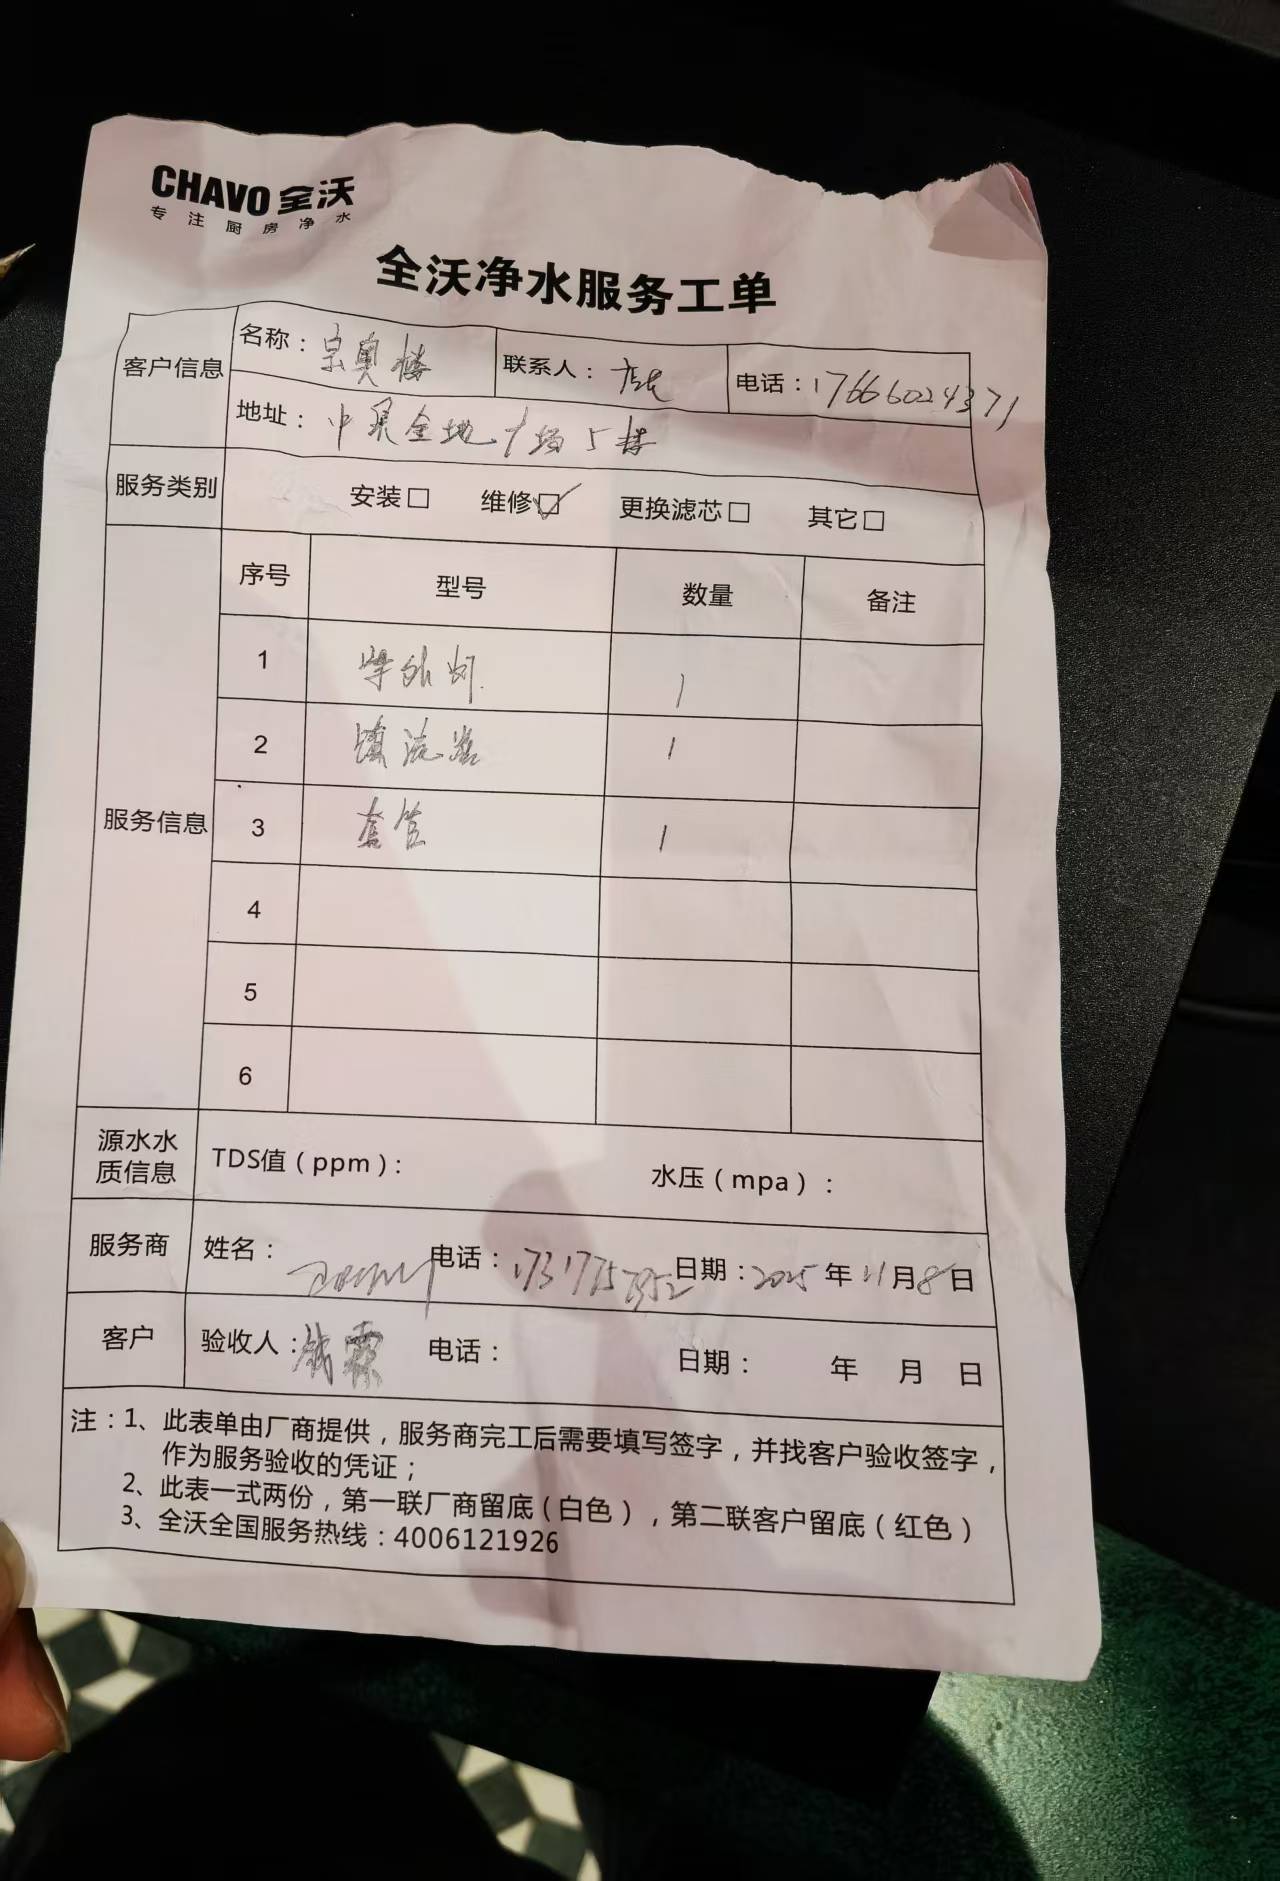 CHAVO 全沃
专注厨房净水
全沃净水服务工单
客户信息 名称： 联系人： 电话：17666024371
地址：中昃金地广场5楼
服务类别 安装□ 维修☑ 更换滤芯□ 其它□
服务信息 序号 型号 数量 备注
1 紫外灯 1
2 镇流器 1
3 套管 1
4
5
6
源水水质信息 TDS值（ppm）： 水压（mpa）：
服务商 姓名： 电话： 日期：2025年11月8日
客户 验收人：钱霖 电话： 日期： 年 月 日
注：1、此表单由厂商提供，服务商完工后需要填写签字，并找客户验收签字，
作为服务验收的凭证；
2、此表一式两份，第一联厂商留底（白色），第二联客户留底（红色）
3、全沃全国服务热线：4006121926